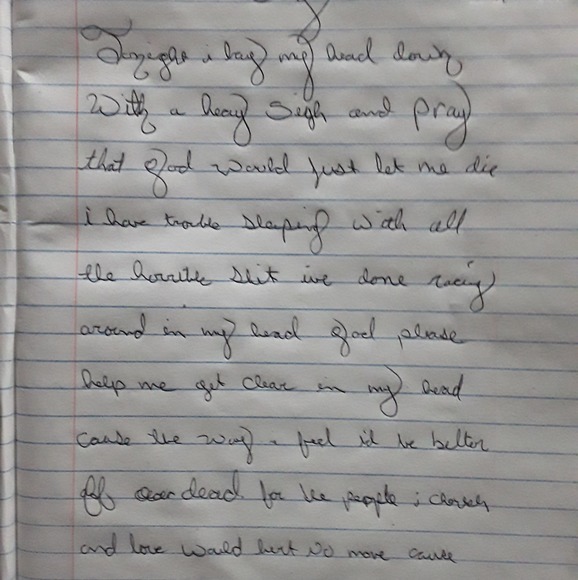 Tonight i lay my head down
With a heavy sigh and pray
that god would just let me die
i have trouble sleeping with all
the horrible shit ive done racing
around in my head god please
help me get clear in my head
cause the way i feel id be better
off dead for the people i cherish
and love would hurt no more cause